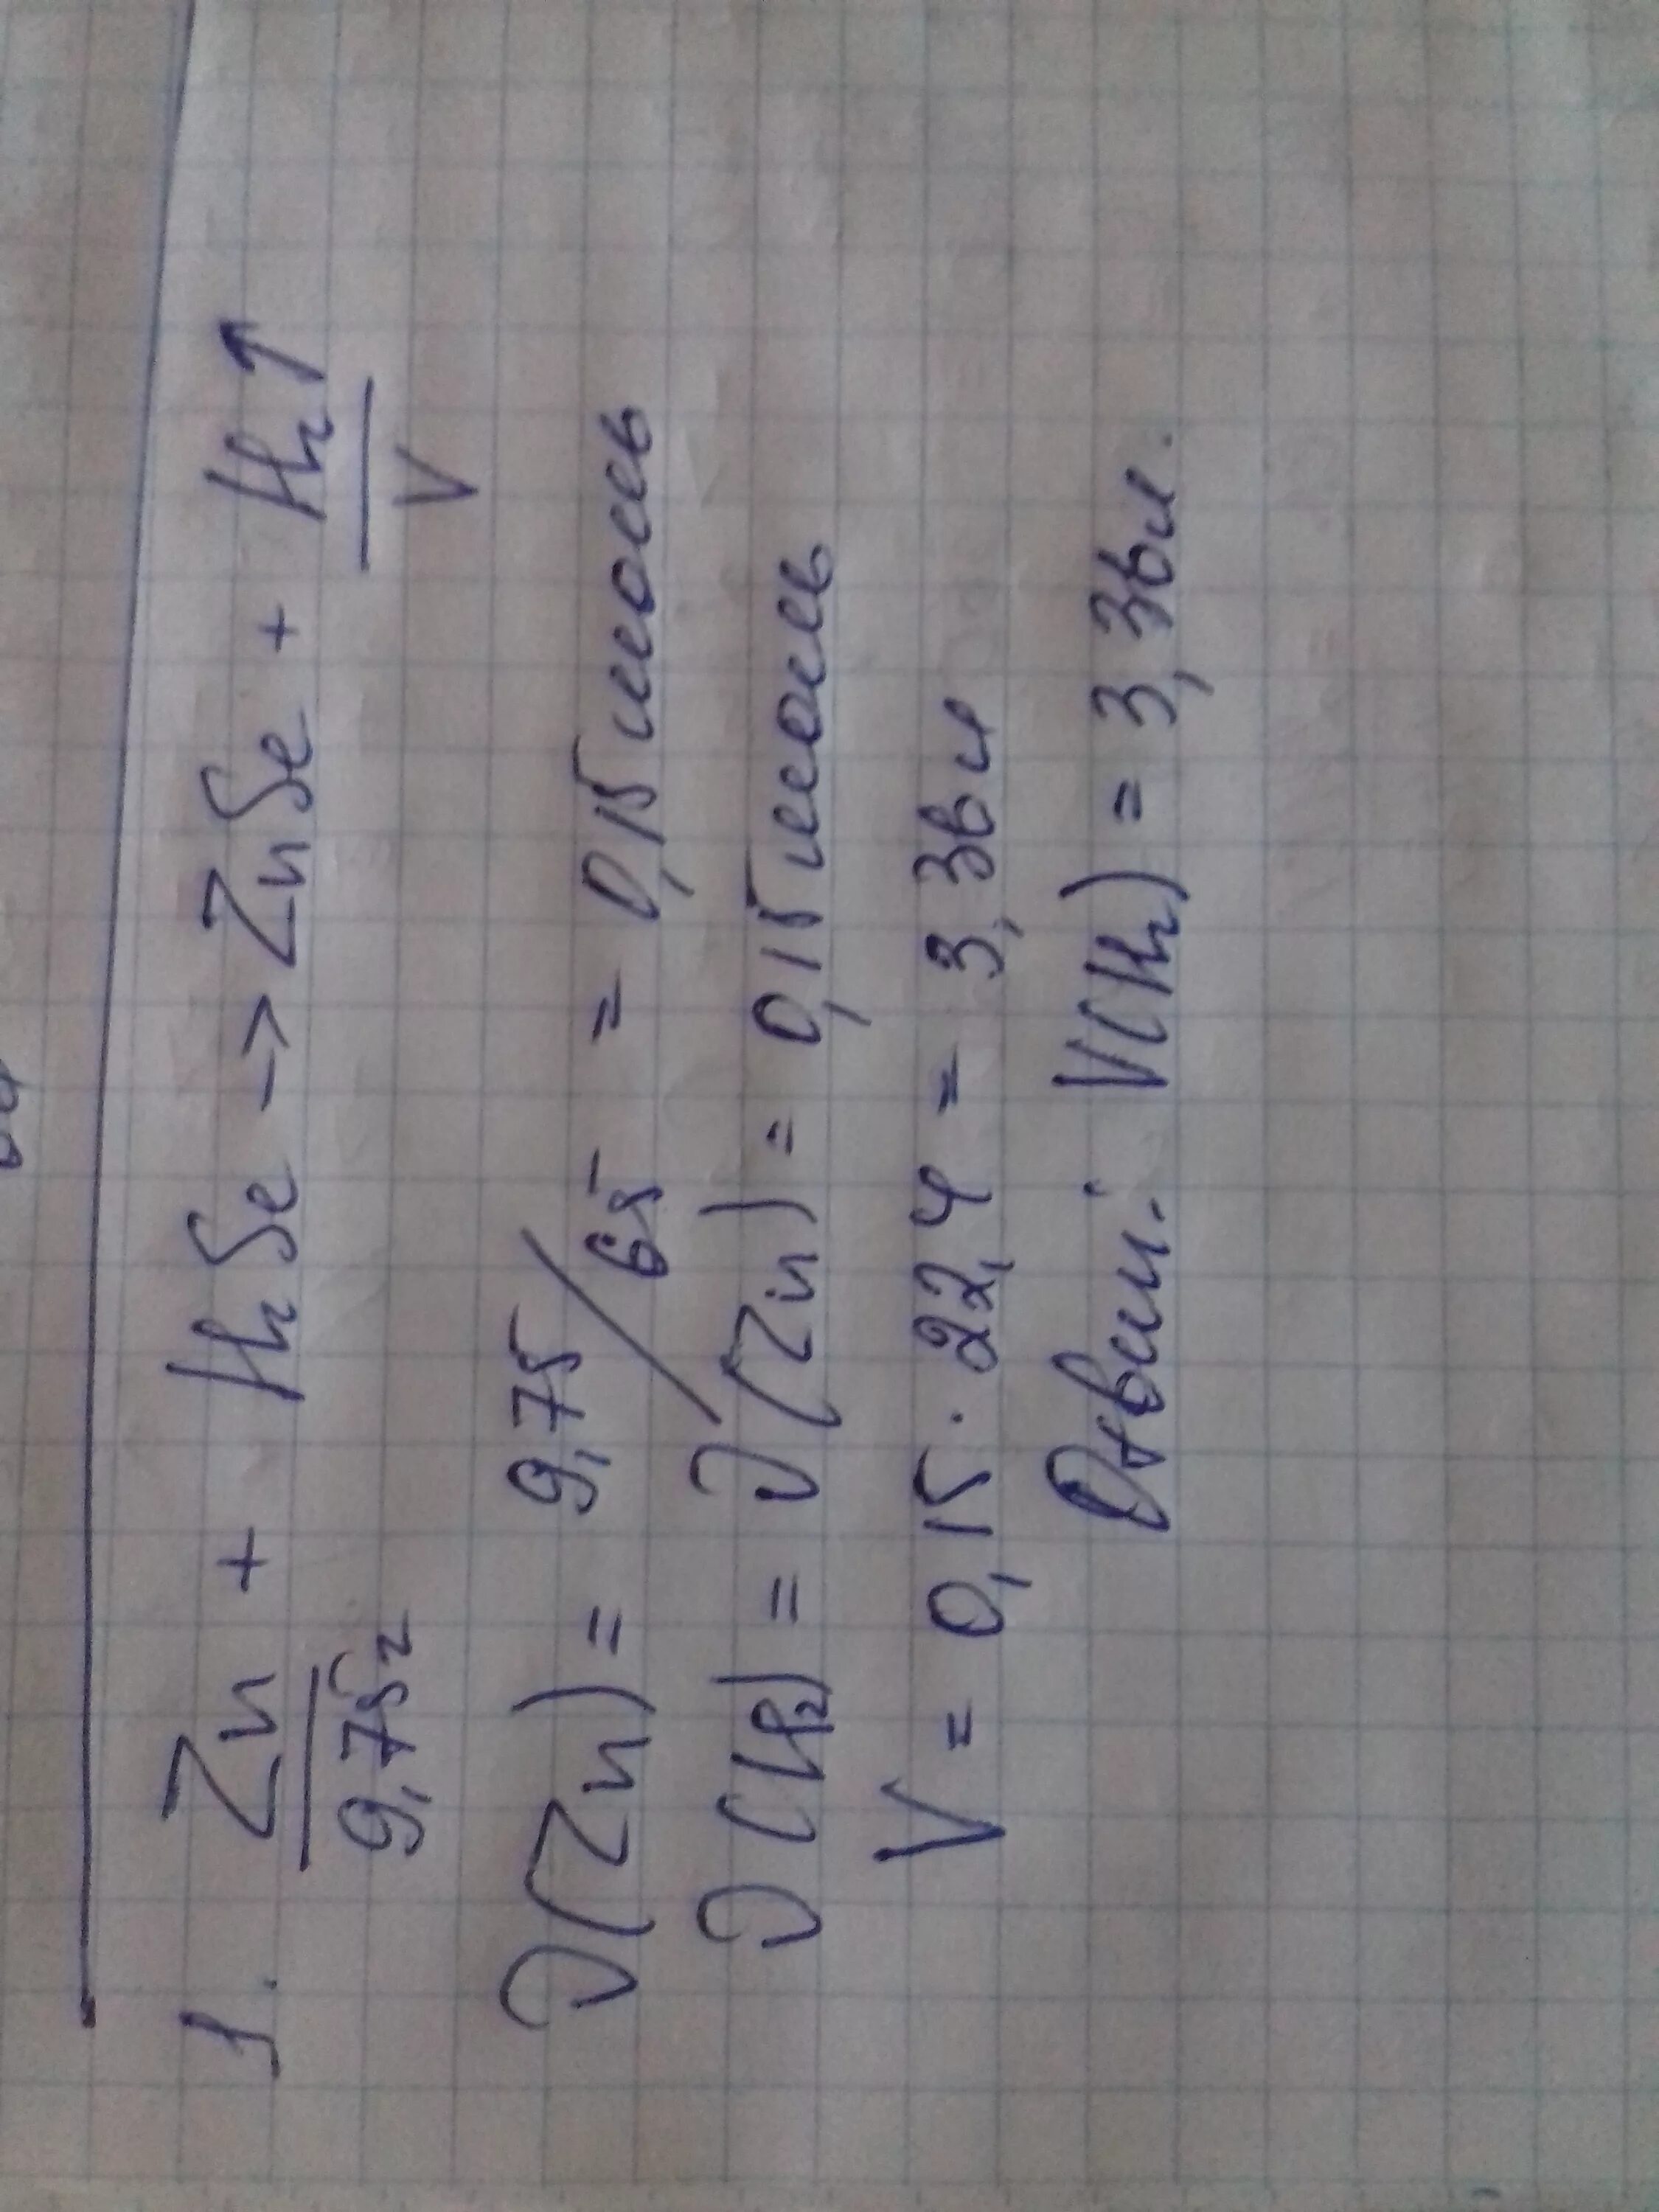 1. Zn + H₂Se → ZnSe + H₂↑
9,75г V
ν(Zn) = 9,75/65 = 0,15 моль
ν(H₂) = ν(Zn) = 0,15 моль
V = 0,15 · 22,4 = 3,36 л
Ответ: V(H₂) = 3,36 л.